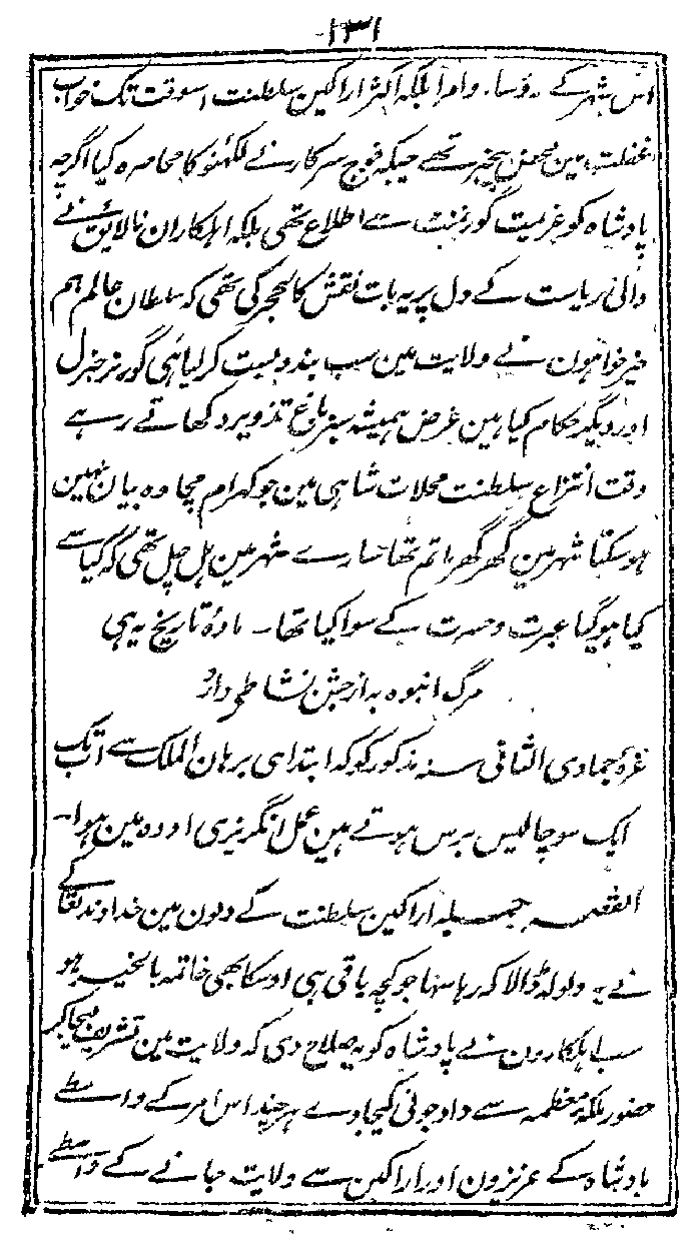 ۱۳۱
اس شہر کے رؤسا و امرا بلکہ اکثر اراکین سلطنت اسوقت تک خواب
غفلت مین محض بیخبر تھے جبکہ فوج سرکار نے لکھنؤ کا محاصرہ کیا اگرچہ
پادشاہ کو عزیمت گورنمنٹ سے اطلاع تھی بلکہ اہلکاران نالایق نے
والی ریاست کے دل پر یہ بات نقش کالحجر کی تھی کہ سلطان عالم ہم
خیرخواہون نے ولایت مین سب بندوبست کرلیا ہی گورنر جنرل
اور دیگر حکام کیا ہین غرض ہمیشہ سبز باغ تذویر دکھاتے رہے
وقت انتزاع سلطنت محلات شاہی مین جو کہرام مچا وہ بیان نہین
ہوسکتا شہر مین گھر گھر ماتم تھا سارے شہر مین ہل چل تھی کہ کیا سے
کیا ہوگیا عبرت و حسرت کے سوا کیا تھا ۔ مادۂ تاریخ یہ ہی
مرگ انبوہ بہ از جشن نشاطی دارد
غرۂ جمادی الثانی سنہ مذکور کو کہ ابتدای برہان الملک سے اب تک
ایک سو چالیس برس ہوتے ہین عمل انگریزی اودہ مین ہوا ۔
القصہ جملہ اراکین سلطنت کے دلون مین خداوند تعالے
نے یہ ولولہ ڈالا کہ رہا سہا جو کچہ باقی ہی اوسکا بھی خاتمہ بالخیر ہو
سب اہلکارون نے پادشاہ کو یہ صلاح دی کہ ولایت مین تشریف لیجاکر
حضور ملکہ معظمہ سے داد جوئی کیجاوے ہر چند اس امر کے واسطے
بادشاہ کے عزیزون اور اراکین سے ولایت جانے کے واسطے